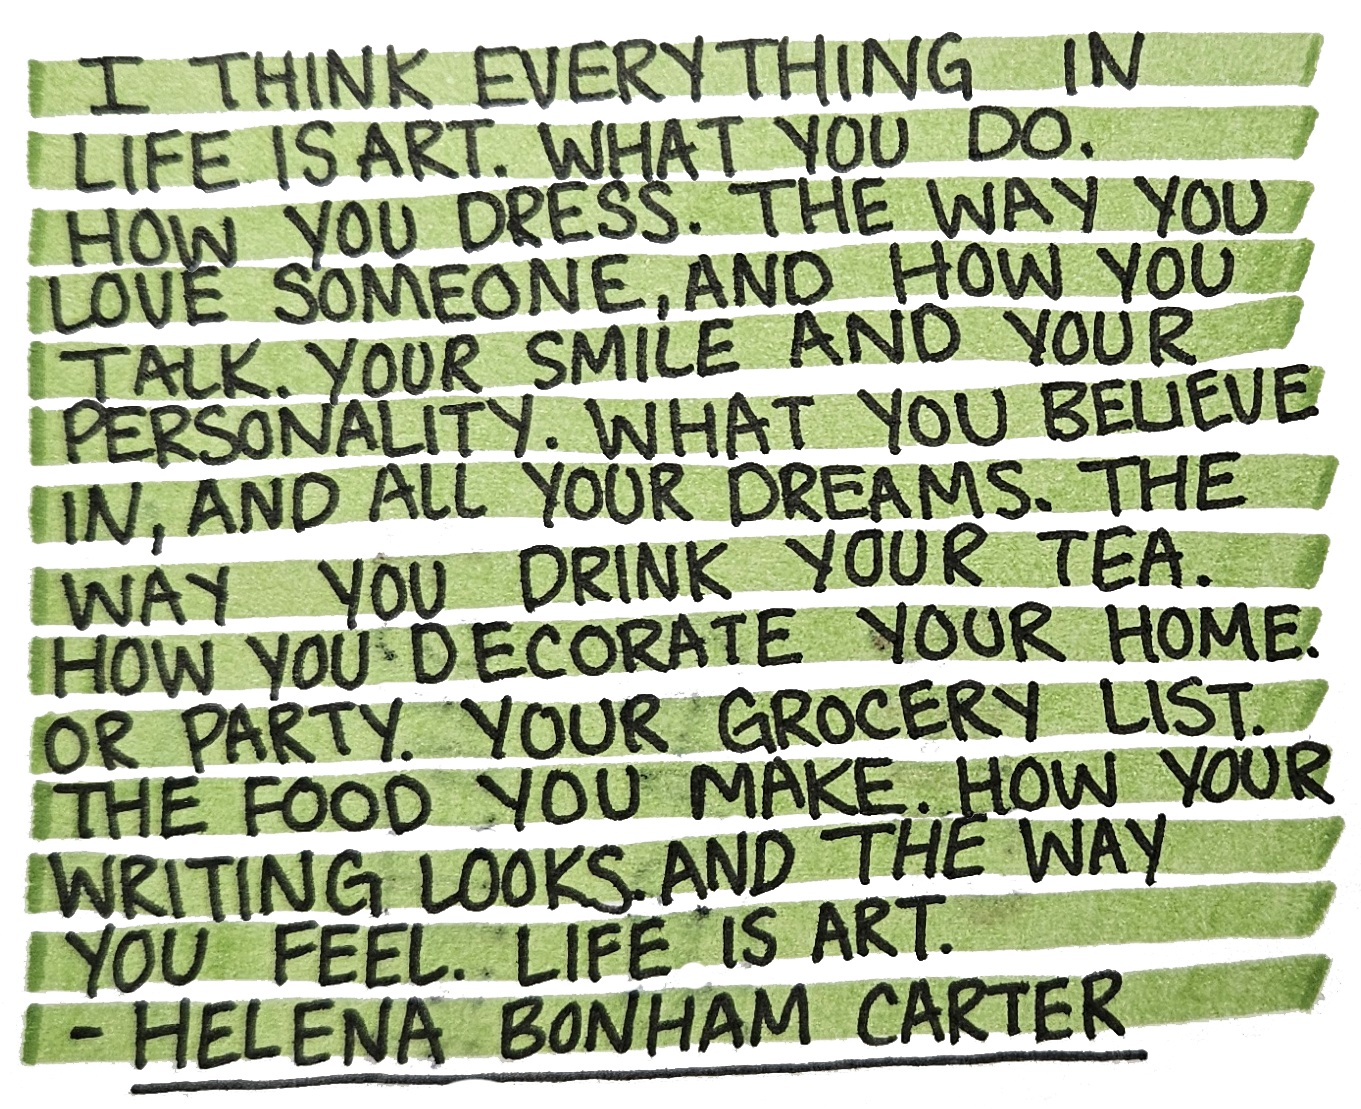 I THINK EVERYTHING IN
LIFE IS ART. WHAT YOU DO.
HOW YOU DRESS. THE WAY YOU
LOVE SOMEONE, AND HOW YOU
TALK. YOUR SMILE AND YOUR
PERSONALITY. WHAT YOU BELIEVE
IN, AND ALL YOUR DREAMS. THE
WAY YOU DRINK YOUR TEA.
HOW YOU DECORATE YOUR HOME.
OR PARTY. YOUR GROCERY LIST.
THE FOOD YOU MAKE. HOW YOUR
WRITING LOOKS. AND THE WAY
YOU FEEL. LIFE IS ART.
- HELENA BONHAM CARTER